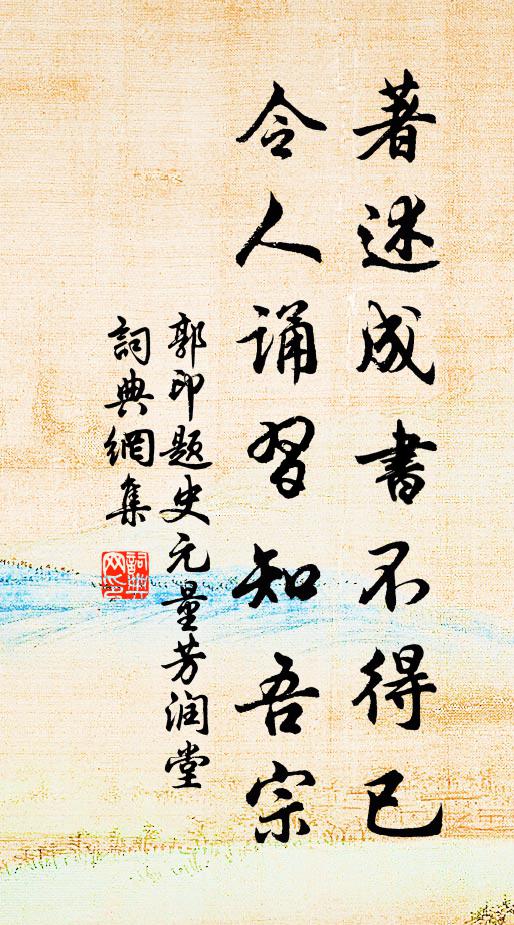 著述成書不得已
令人诵習知吾宗
郭印题史元量芳润堂
詞典網集